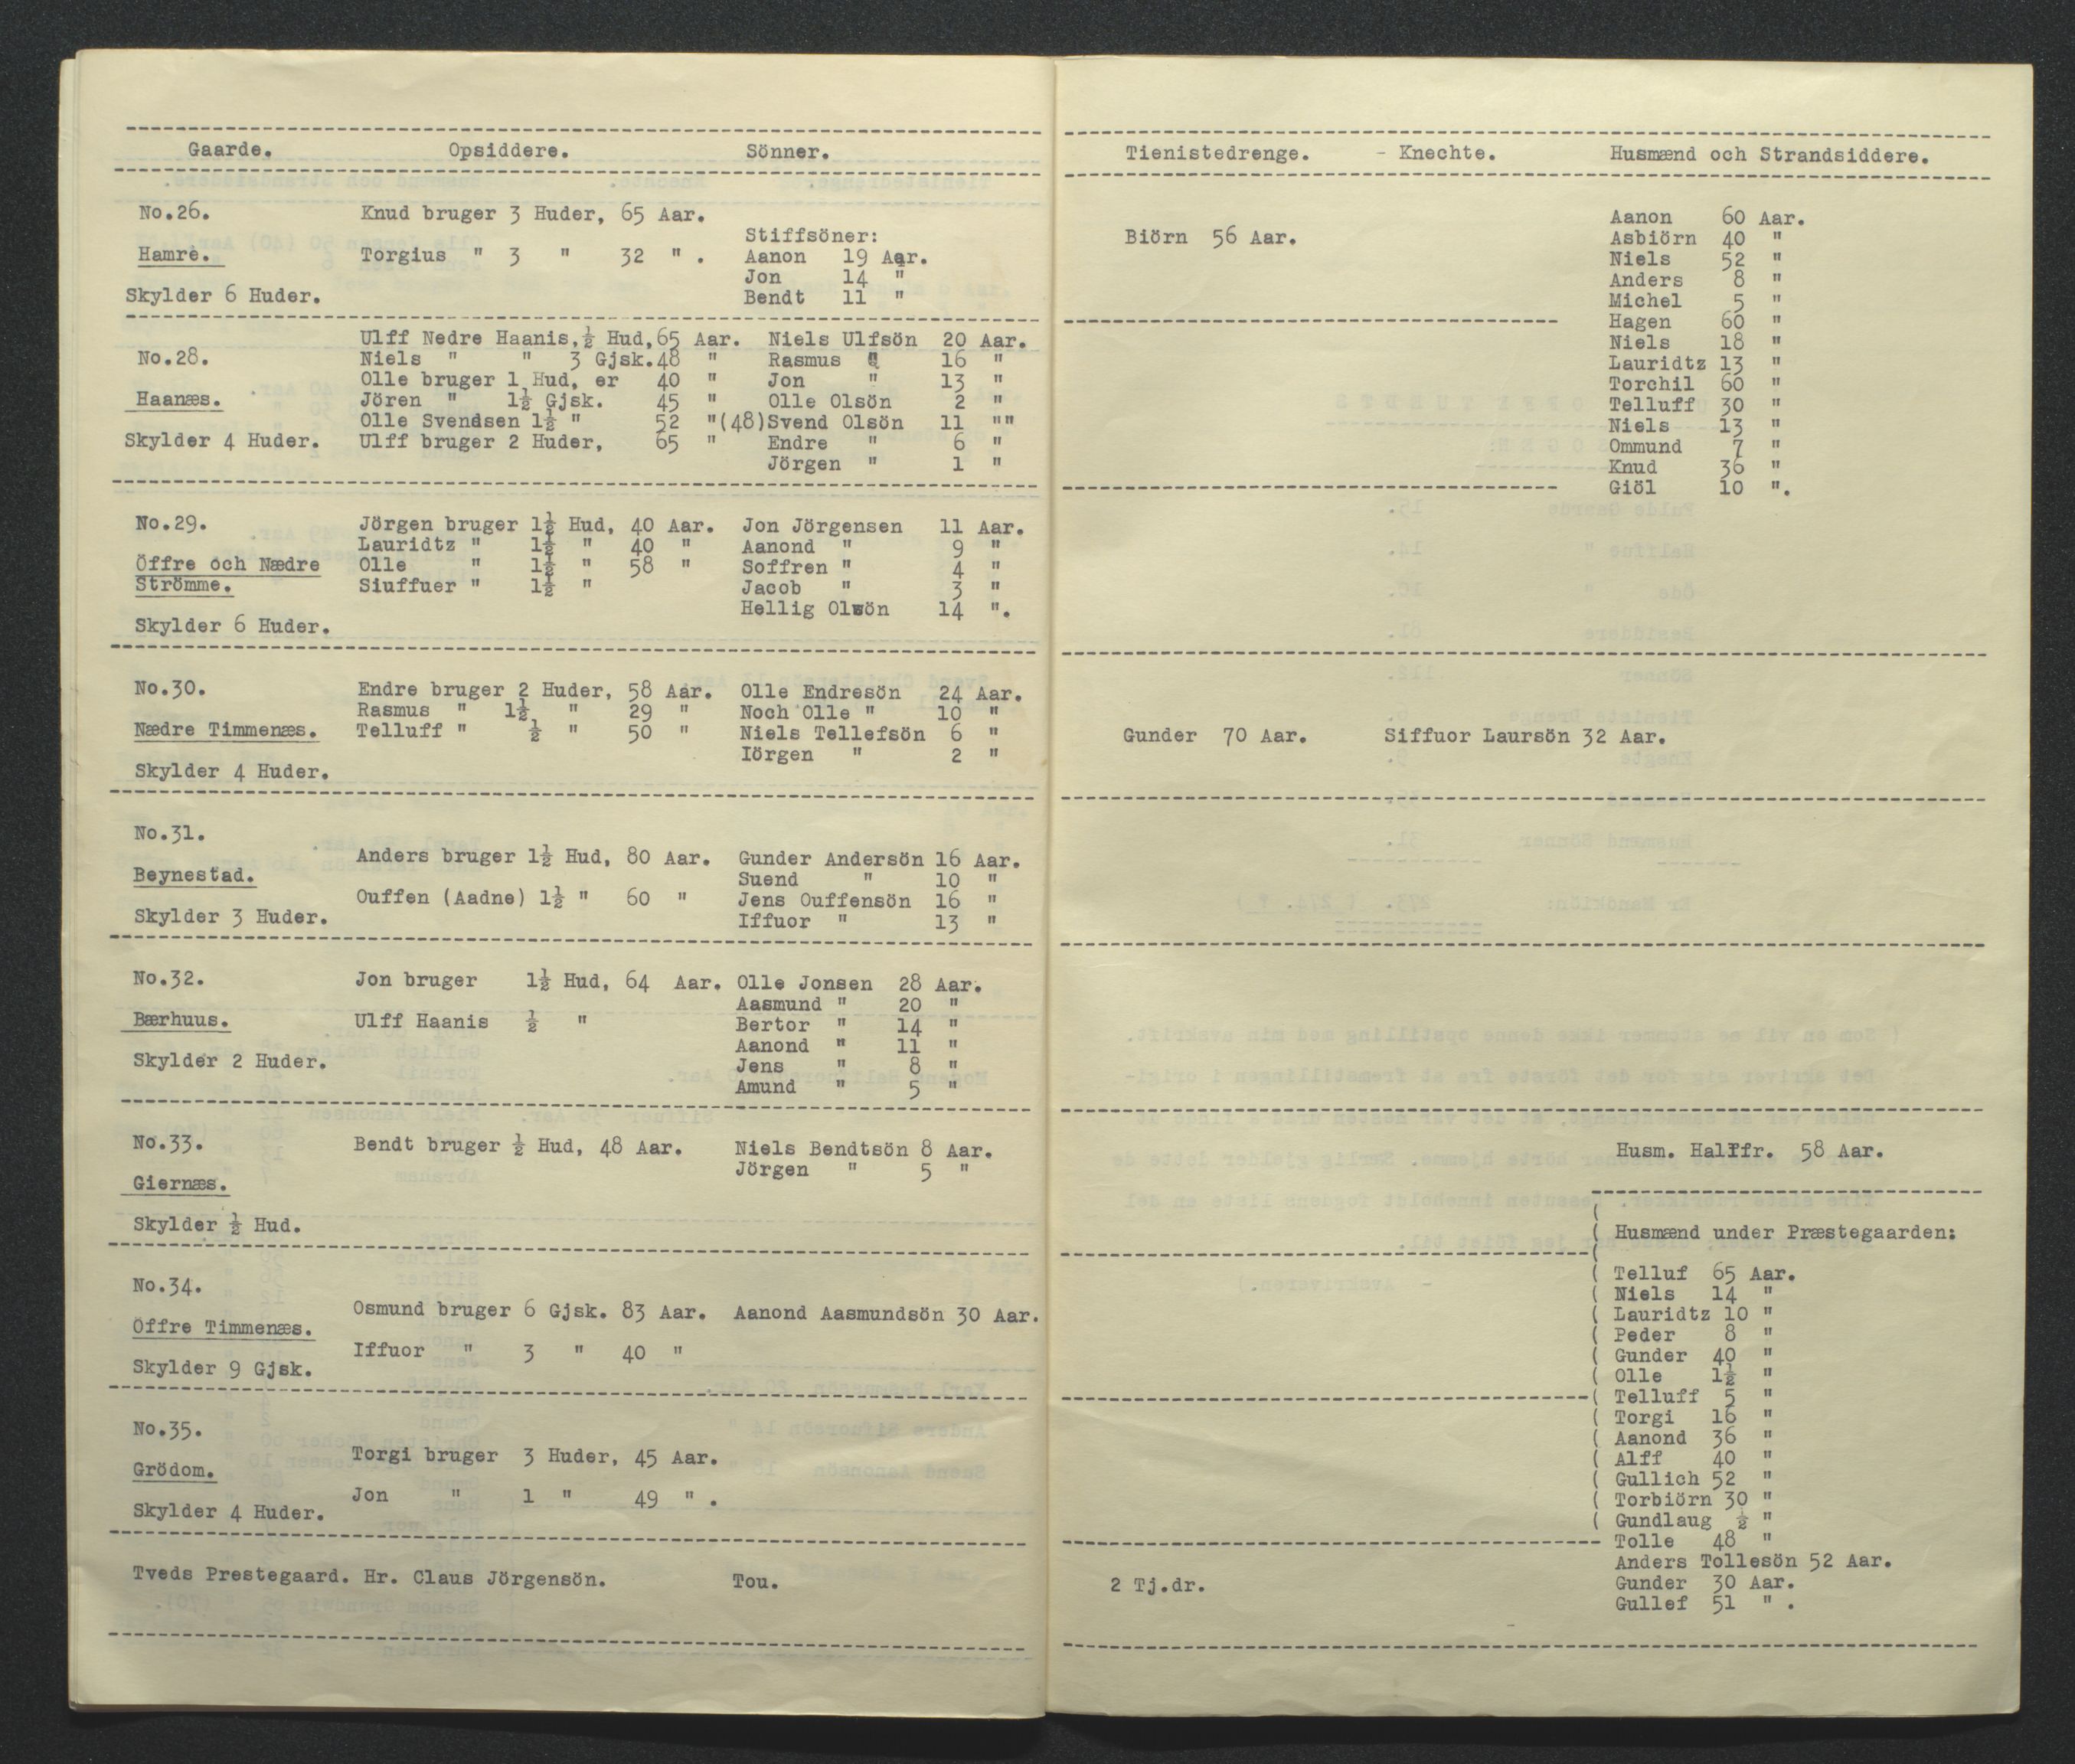 Gaarde. Opsiddere. Sönner.
No.26. Knud bruger 3 Huder, 65 Aar.
Stiffsöner:
Hamre. Torgius " 3 " 32 " . Aanon 19 Aar.
Jon 14 "
Skylder 6 Huder. Bendt 11 "
Ulff Nedre Haanis, ½ Hud, 65 Aar. Niels Ulfsön 20 Aar.
No.28. Niels " " 3 Gjsk. 48 " Rasmus " 16 "
Olle bruger 1 Hud, er 40 " Jon " 13 "
Haanæs. Jören " 1½ Gjsk. 45 " Olle Olsön 2 "
Olle Svendsen 1½ " 52 "(48) Svend Olsön 11 ""
Skylder 4 Huder. Ulff bruger 2 Huder, 65 " Endre " 6 "
Jörgen " 1 "
No.29. Jörgen bruger 1½ Hud, 40 Aar. Jon Jörgensen 11 Aar.
Lauridtz " 1½ " 40 " Aanond " 9 "
Öffre och Nædre Olle " 1½ " 58 " Soffren " 4 "
Strömme. Siuffuer " 1½ " Jacob " 3 "
Hellig Olsön 14 ".
Skylder 6 Huder.
No.30. Endre bruger 2 Huder, 58 Aar. Olle Endresön 24 Aar.
Rasmus " 1½ " 29 " Noch Olle " 10 "
Nædre Timmenæs. Telluff " ½ " 50 " Niels Tellefsön 6 "
Iörgen " 2 "
Skylder 4 Huder.
No.31.
Anders bruger 1½ Hud, 80 Aar. Gunder Andersön 16 Aar.
Beynestad. Suend " 10 "
Ouffen (Aadne) 1½ " 60 " Jens Ouffensön 16 "
Skylder 3 Huder. Iffuor " 13 "
No.32. Jon bruger 1½ Hud, 64 Aar. Olle Jonsen 28 Aar.
Aasmund " 20 "
Bærhuus. Ulff Haanis ½ " Bertor " 14 "
Aanond " 11 "
Skylder 2 Huder. Jens " 8 "
Amund " 5 "
No.33. Bendt bruger ½ Hud, 48 Aar. Niels Bendtsön 8 Aar.
Jörgen " 5 "
Giernæs.
Skylder ½ Hud.
No.34.
Osmund bruger 6 Gjsk. 83 Aar. Aanond Aasmundsön 30 Aar.
Öffre Timmenæs.
Iffuor " 3 " 40 "
Skylder 9 Gjsk.
No.35.
Torgi bruger 3 Huder, 45 Aar.
Grödom.
Jon " 1 " 49 " .
Skylder 4 Huder.
Tveds Prestegaard. Hr. Claus Jörgensön. Tou.
Tienistedrenge. - Knechte. Husmænd och Strandsiddere.
Aanon 60 Aar.
Biörn 56 Aar. Asbiörn 40 "
Niels 52 "
Anders 8 "
Michel 5 "
Hagen 60 "
Niels 18 "
Lauridtz 13 "
Torchil 60 "
Telluff 30 "
Niels 13 "
Ommund 7 "
Knud 36 "
Giöl 10 ".
Gunder 70 Aar. Siffuor Laursön 32 Aar.
Husm. Halffr. 58 Aar.
(
( Husmænd under Præstegaarden:
(
( Telluf 65 Aar.
( Niels 14 "
( Lauridtz 10 "
( Peder 8 "
( Gunder 40 "
( Olle 1½ "
( Telluff 5 "
( Torgi 16 "
( Aanond 36 "
( Alff 40 "
( Gullich 52 "
( Torbiörn 30 "
( Gundlaug ½ "
Tolle 48 "
Anders Tollesön 52 Aar.
2 Tj.dr. Gunder 30 Aar.
Gullef 51 " .